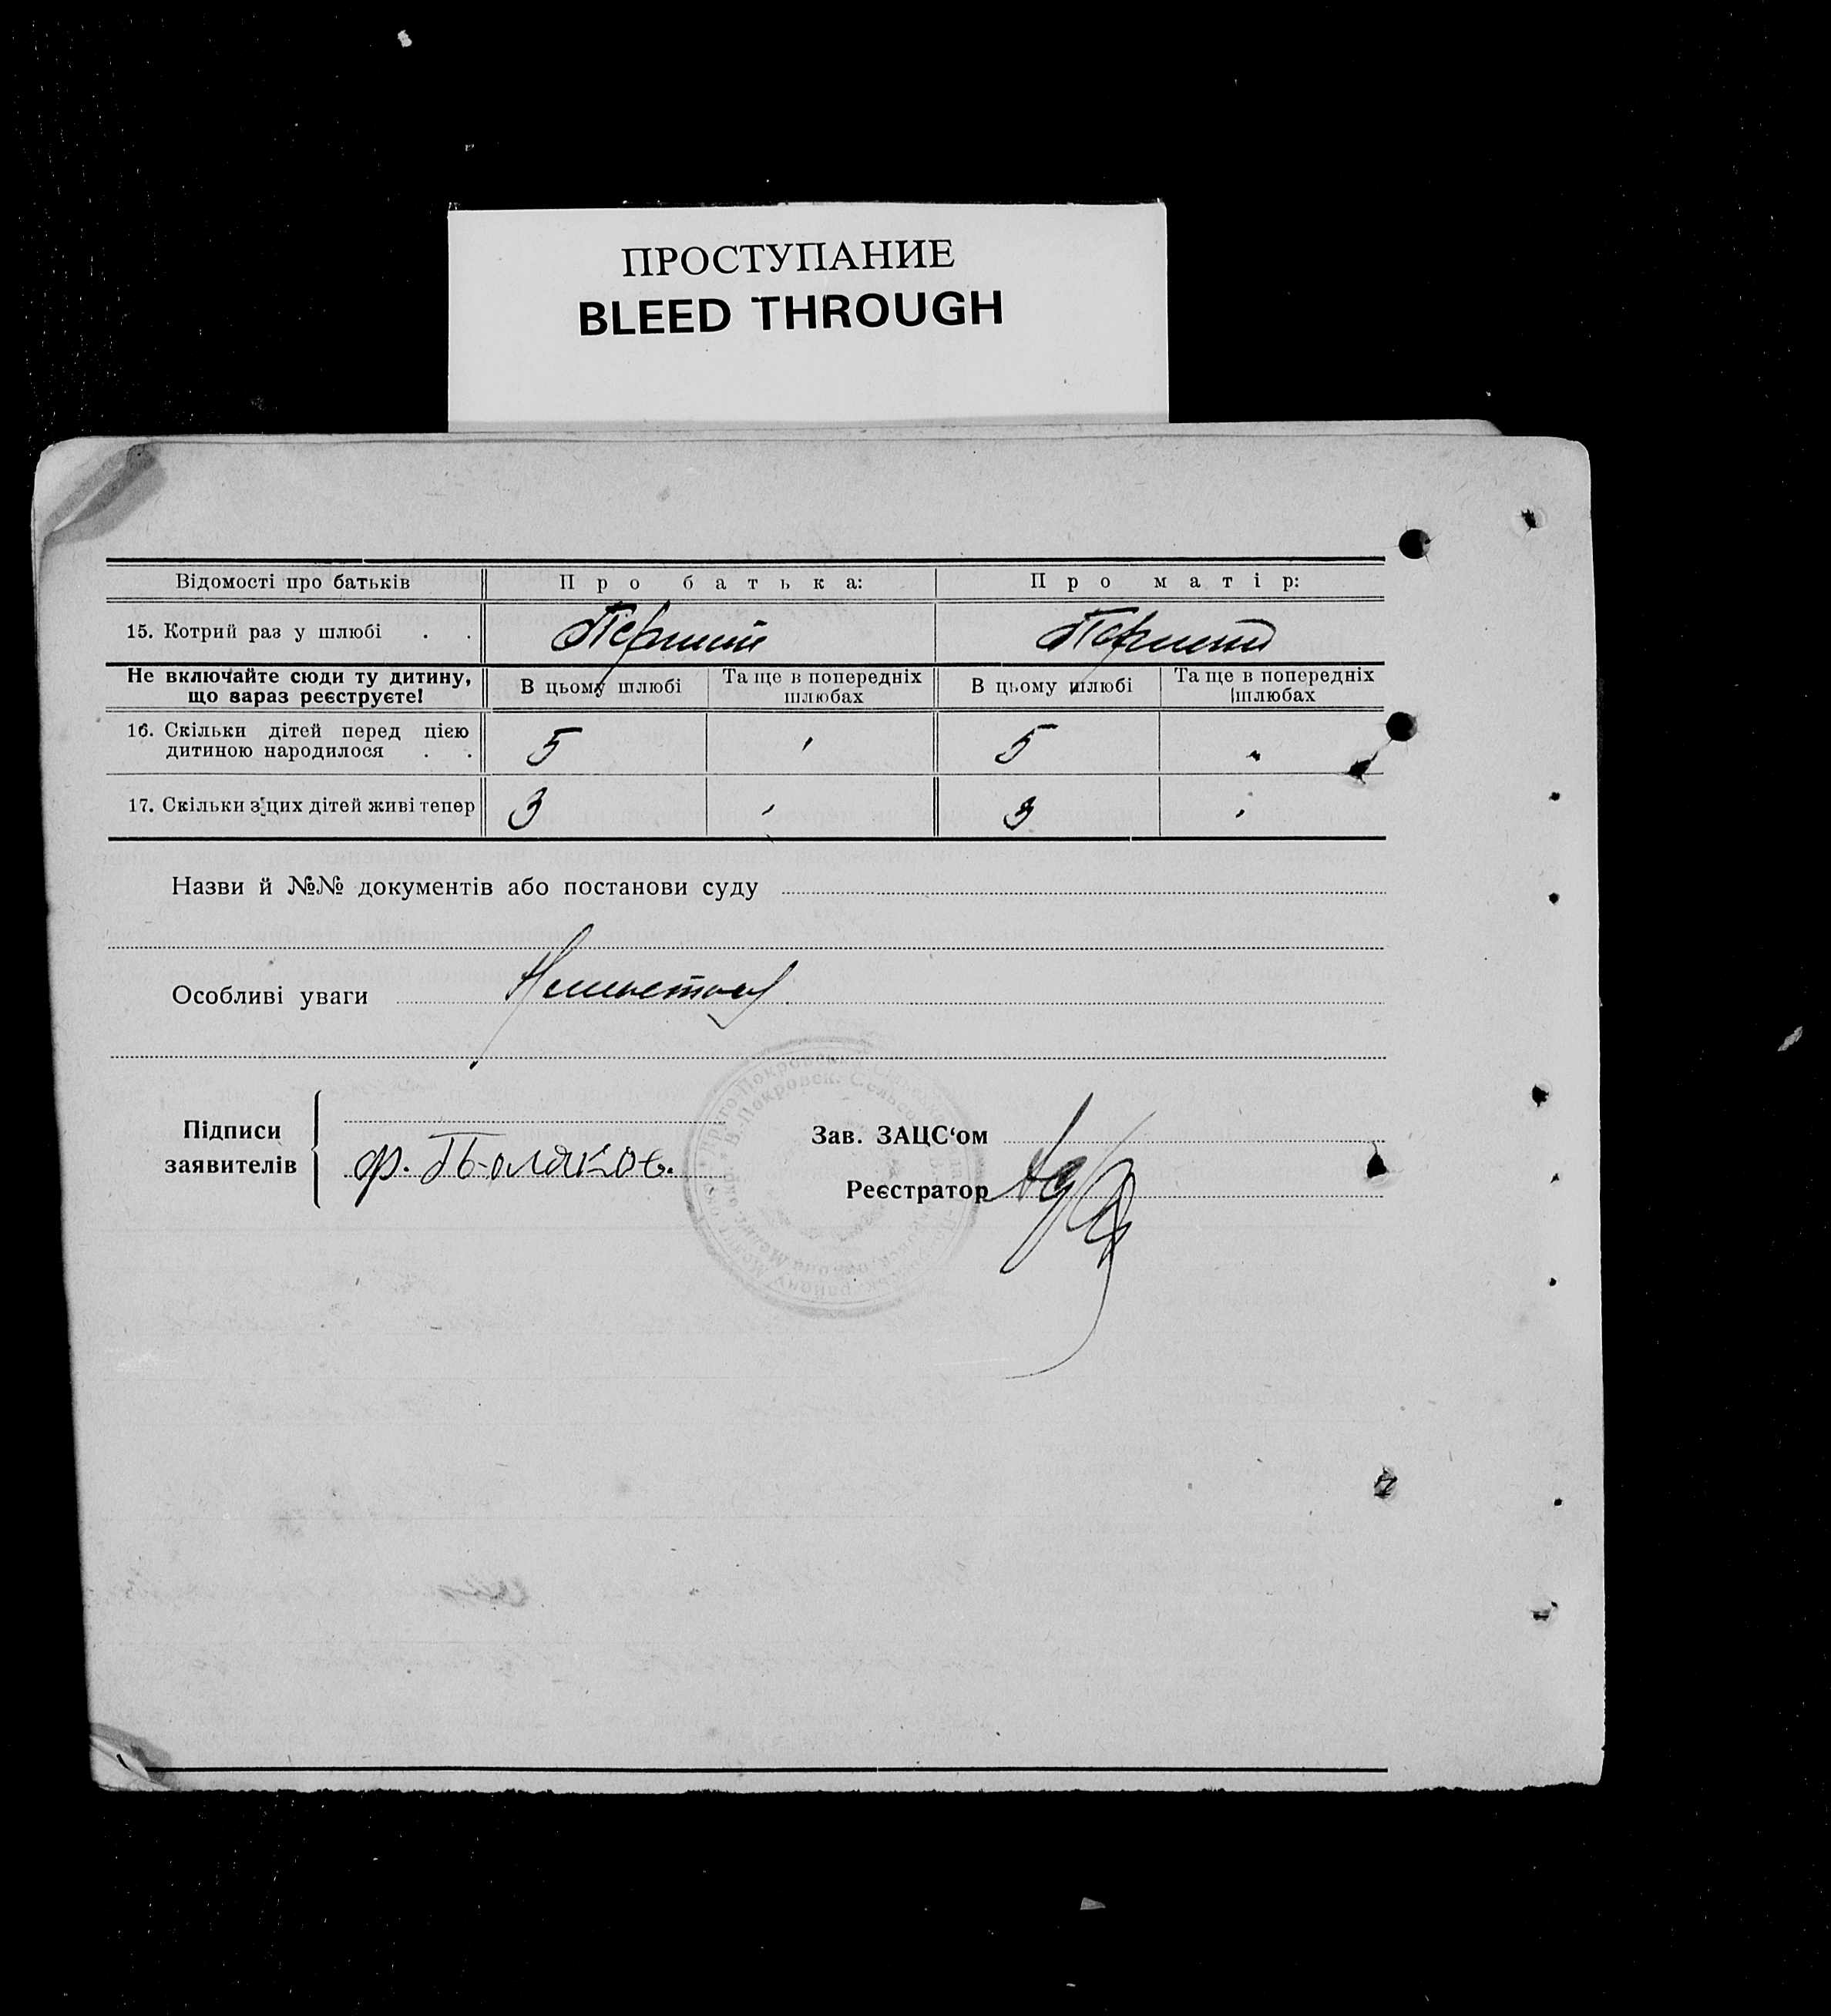 ПРОСТУПАНИЕ
BLEED THROUGH
Відомості про батьків Про батька: Про матір:
15. Котрий раз у шлюбі . . Перший Перший
Не включайте сюди ту дитину, що зараз реєструєте! В цьому шлюбі Та ще в попередніх шлюбах В цьому шлюбі Та ще в попередніх шлюбах
16. Скільки дітей перед цією
дитиною народилося . . 5 5
17. Скільки з цих дітей живі тепер 3 3
Назви й №№ документів або постанови суду
Особливі уваги
Підписи
заявителів
ф. Поляков.
Зав. ЗАЦС‘ом
Реєстратор